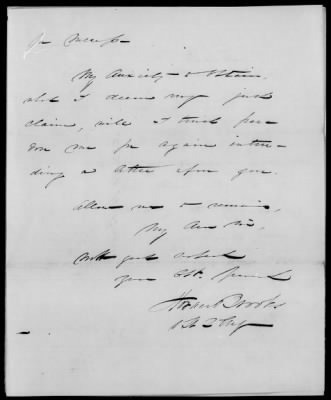 for
My Anxiety to obtain
what I deem my just
claim, will I trust par-
don me for again intru-
ding a letter upon you.
Allow me to remain,
My dear Sir,
With great respect
your Obt. Servant
Horace Brooks